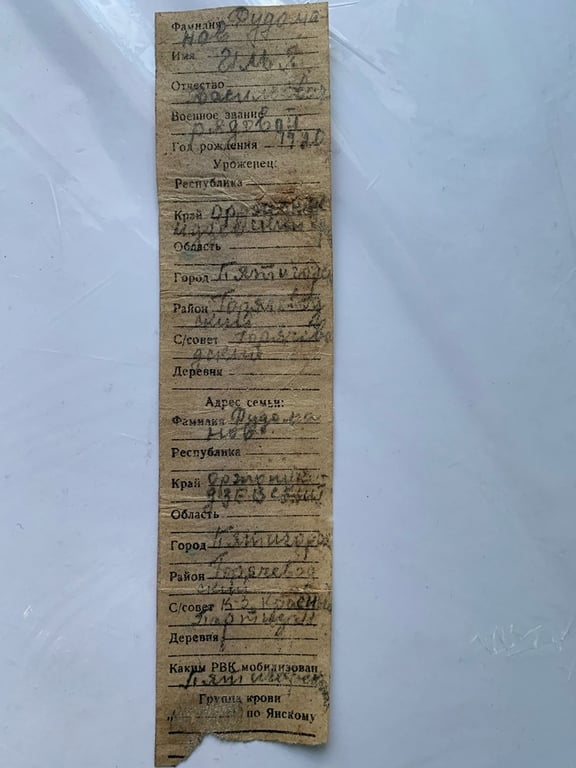 Фамилия Фудома-
нов
Имя Илья
Отчество
Васильевич
Военное звание
рядовой
Год рождения 1920
Уроженец:
Республика
Край Орджони-
Область
Город Пятигорск
Район Горячевод
ский
С/совет Горячево
дский
Деревня
Адрес семьи:
Фамилия Фудома
нов
Республика
Край Орджоник-
дзевский
Область
Город Пятигорск
Район Горячевод
ский
С/совет к-з Красный
Партизан
Деревня
Каким РВК мобилизован
Пятигорск
Группа крови
по Янскому